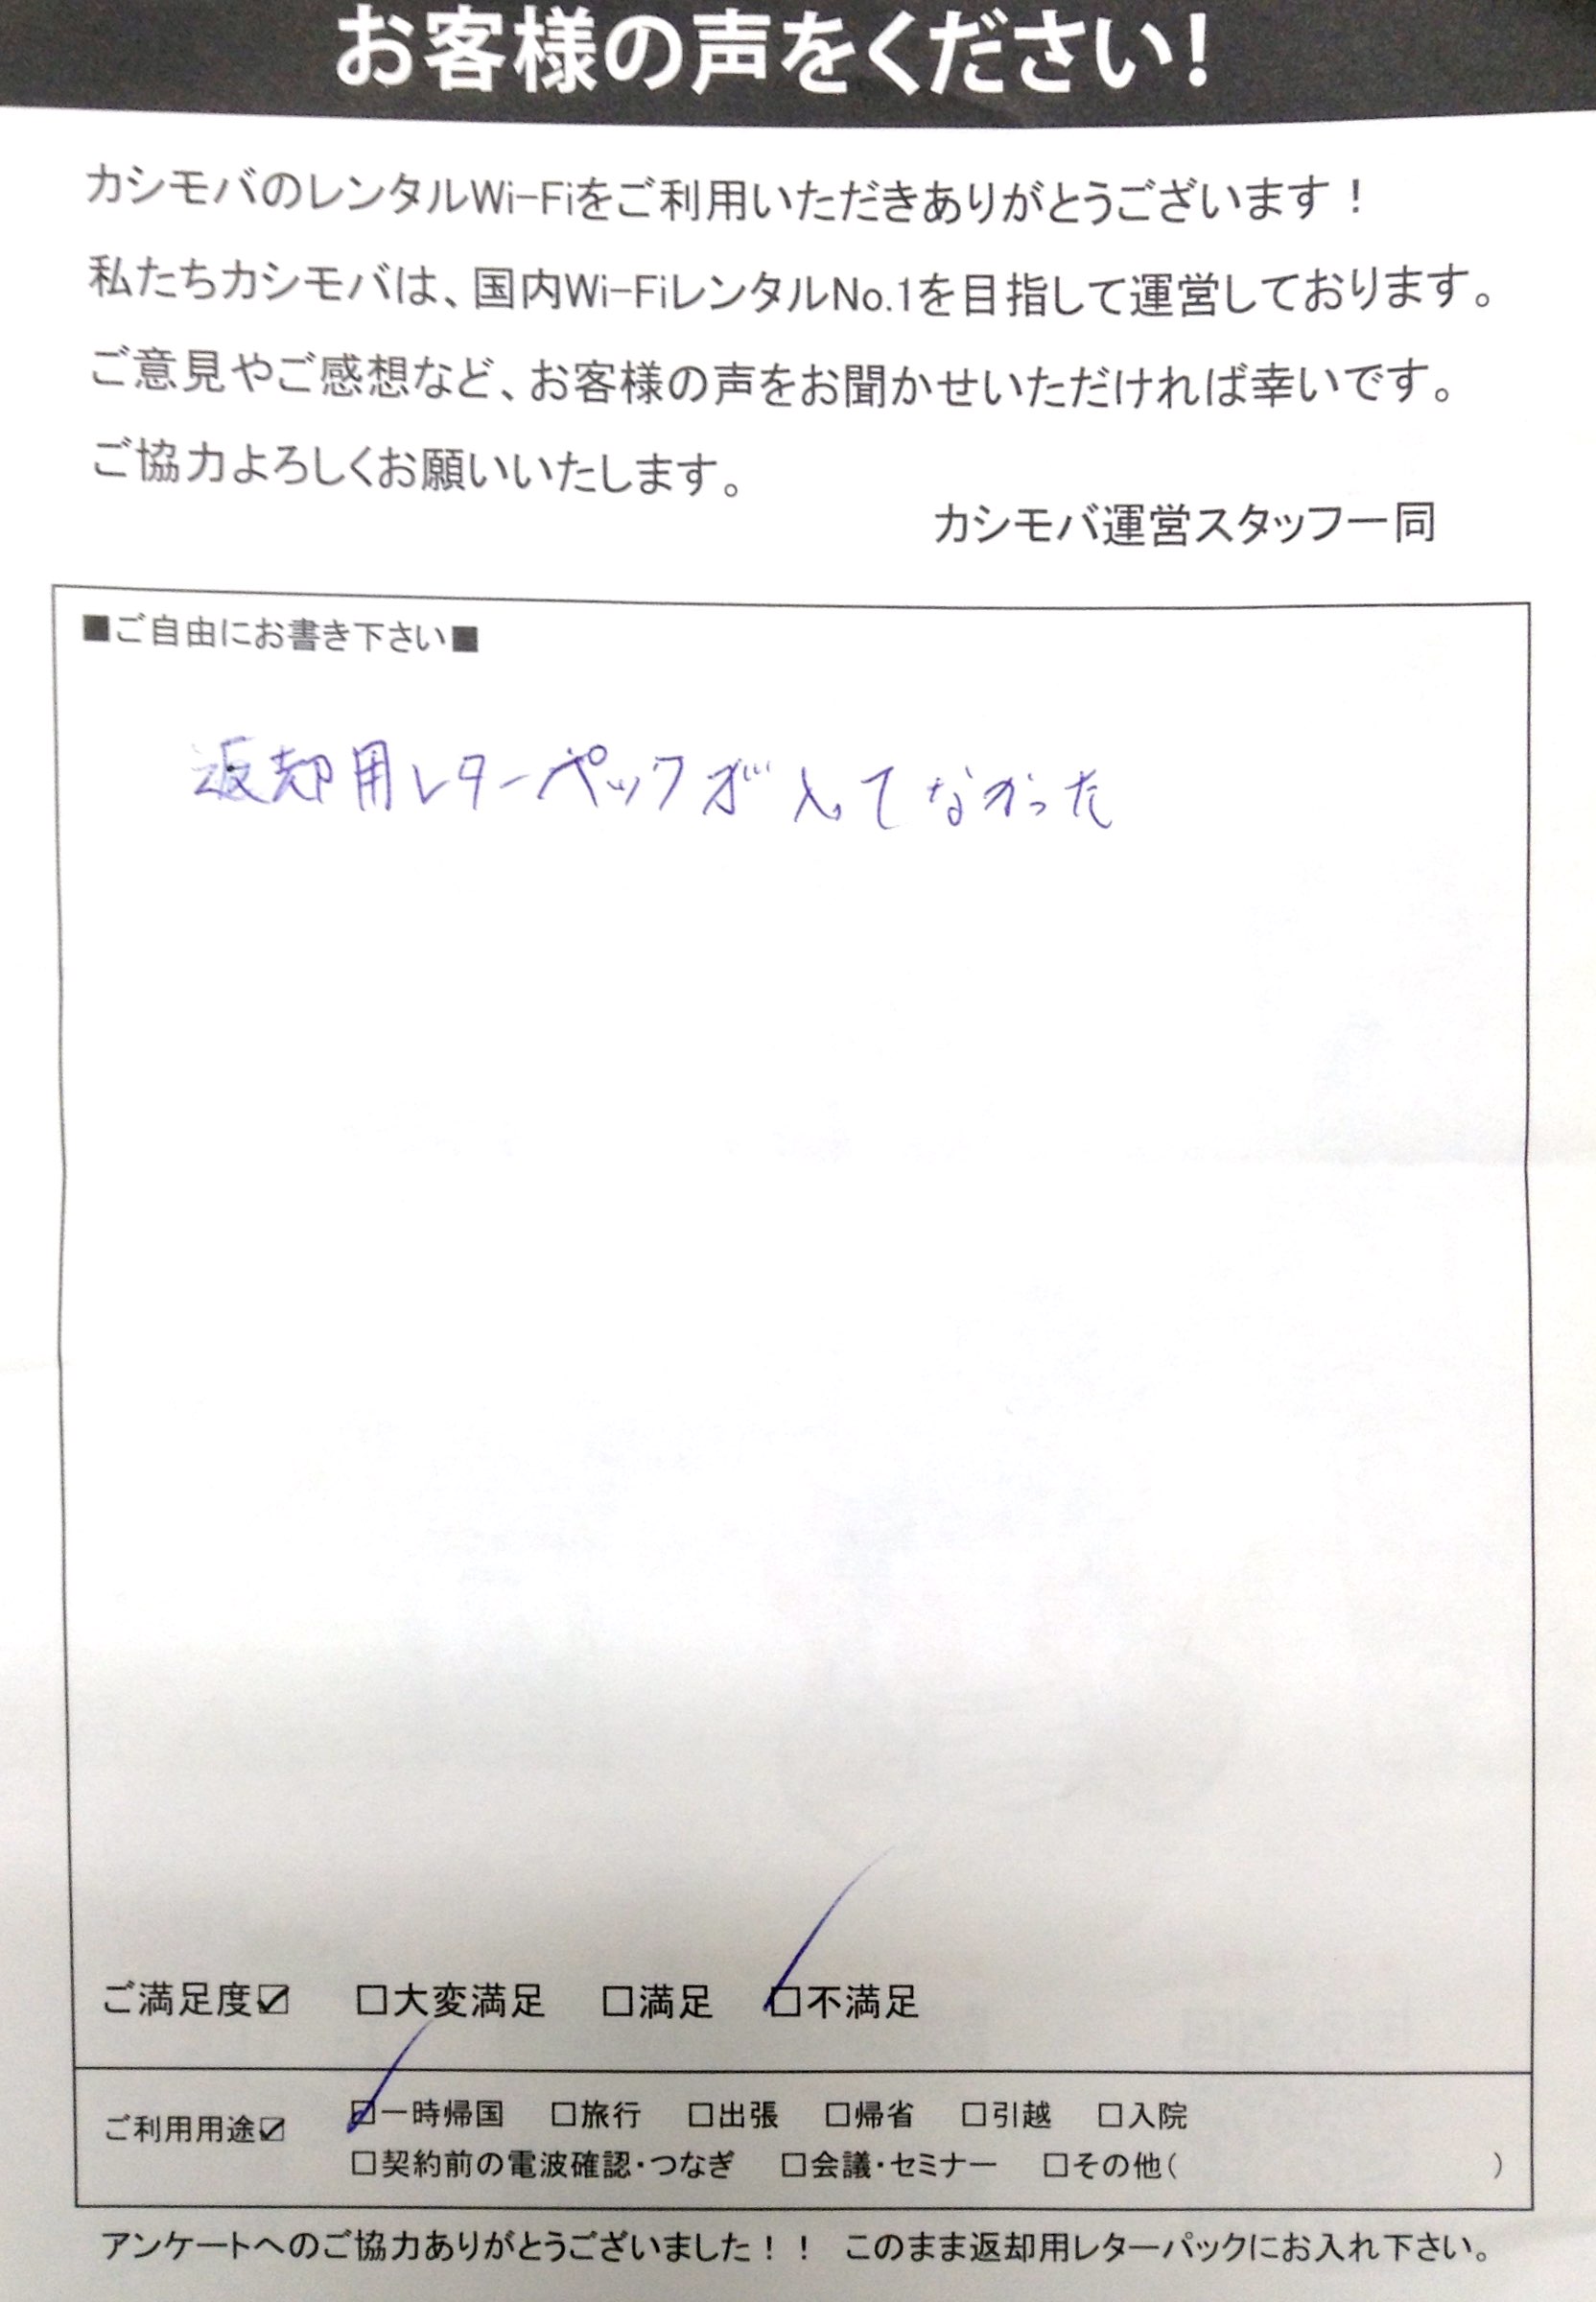 お客様の声をください!
カシモバのレンタルWi-Fiをご利用いただきありがとうございます！
私たちカシモバは、国内Wi-FiレンタルNo.1を目指して運営しております。
ご意見やご感想など、お客様の声をお聞かせいただければ幸いです。
ご協力よろしくお願いいたします。
カシモバ運営スタッフ一同
■ご自由にお書き下さい■
返却用レターペックが入ってなかった
ご満足度☑ □大変満足 □満足 ☑不満足
ご利用用途☑ ☑一時帰国 □旅行 □出張 □帰省 □引越 □入院
□契約前の電波確認・つなぎ □会議・セミナー □その他( )
アンケートへのご協力ありがとうございました！！ このまま返却用レターパックにお入れ下さい。